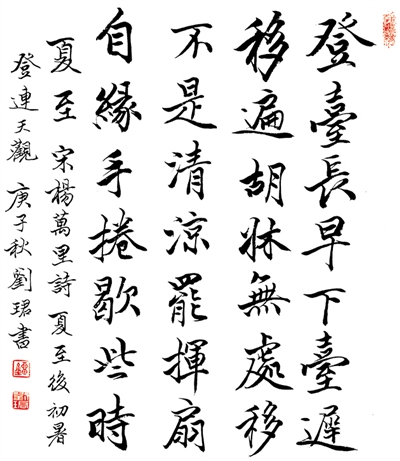 登臺長早下臺遲
移遍胡牀無處移
不是清涼罷揮扇
自緣手捲歇些時
夏至 宋楊萬里詩 夏至後初暑
登連天觀 庚子秋劉珺書